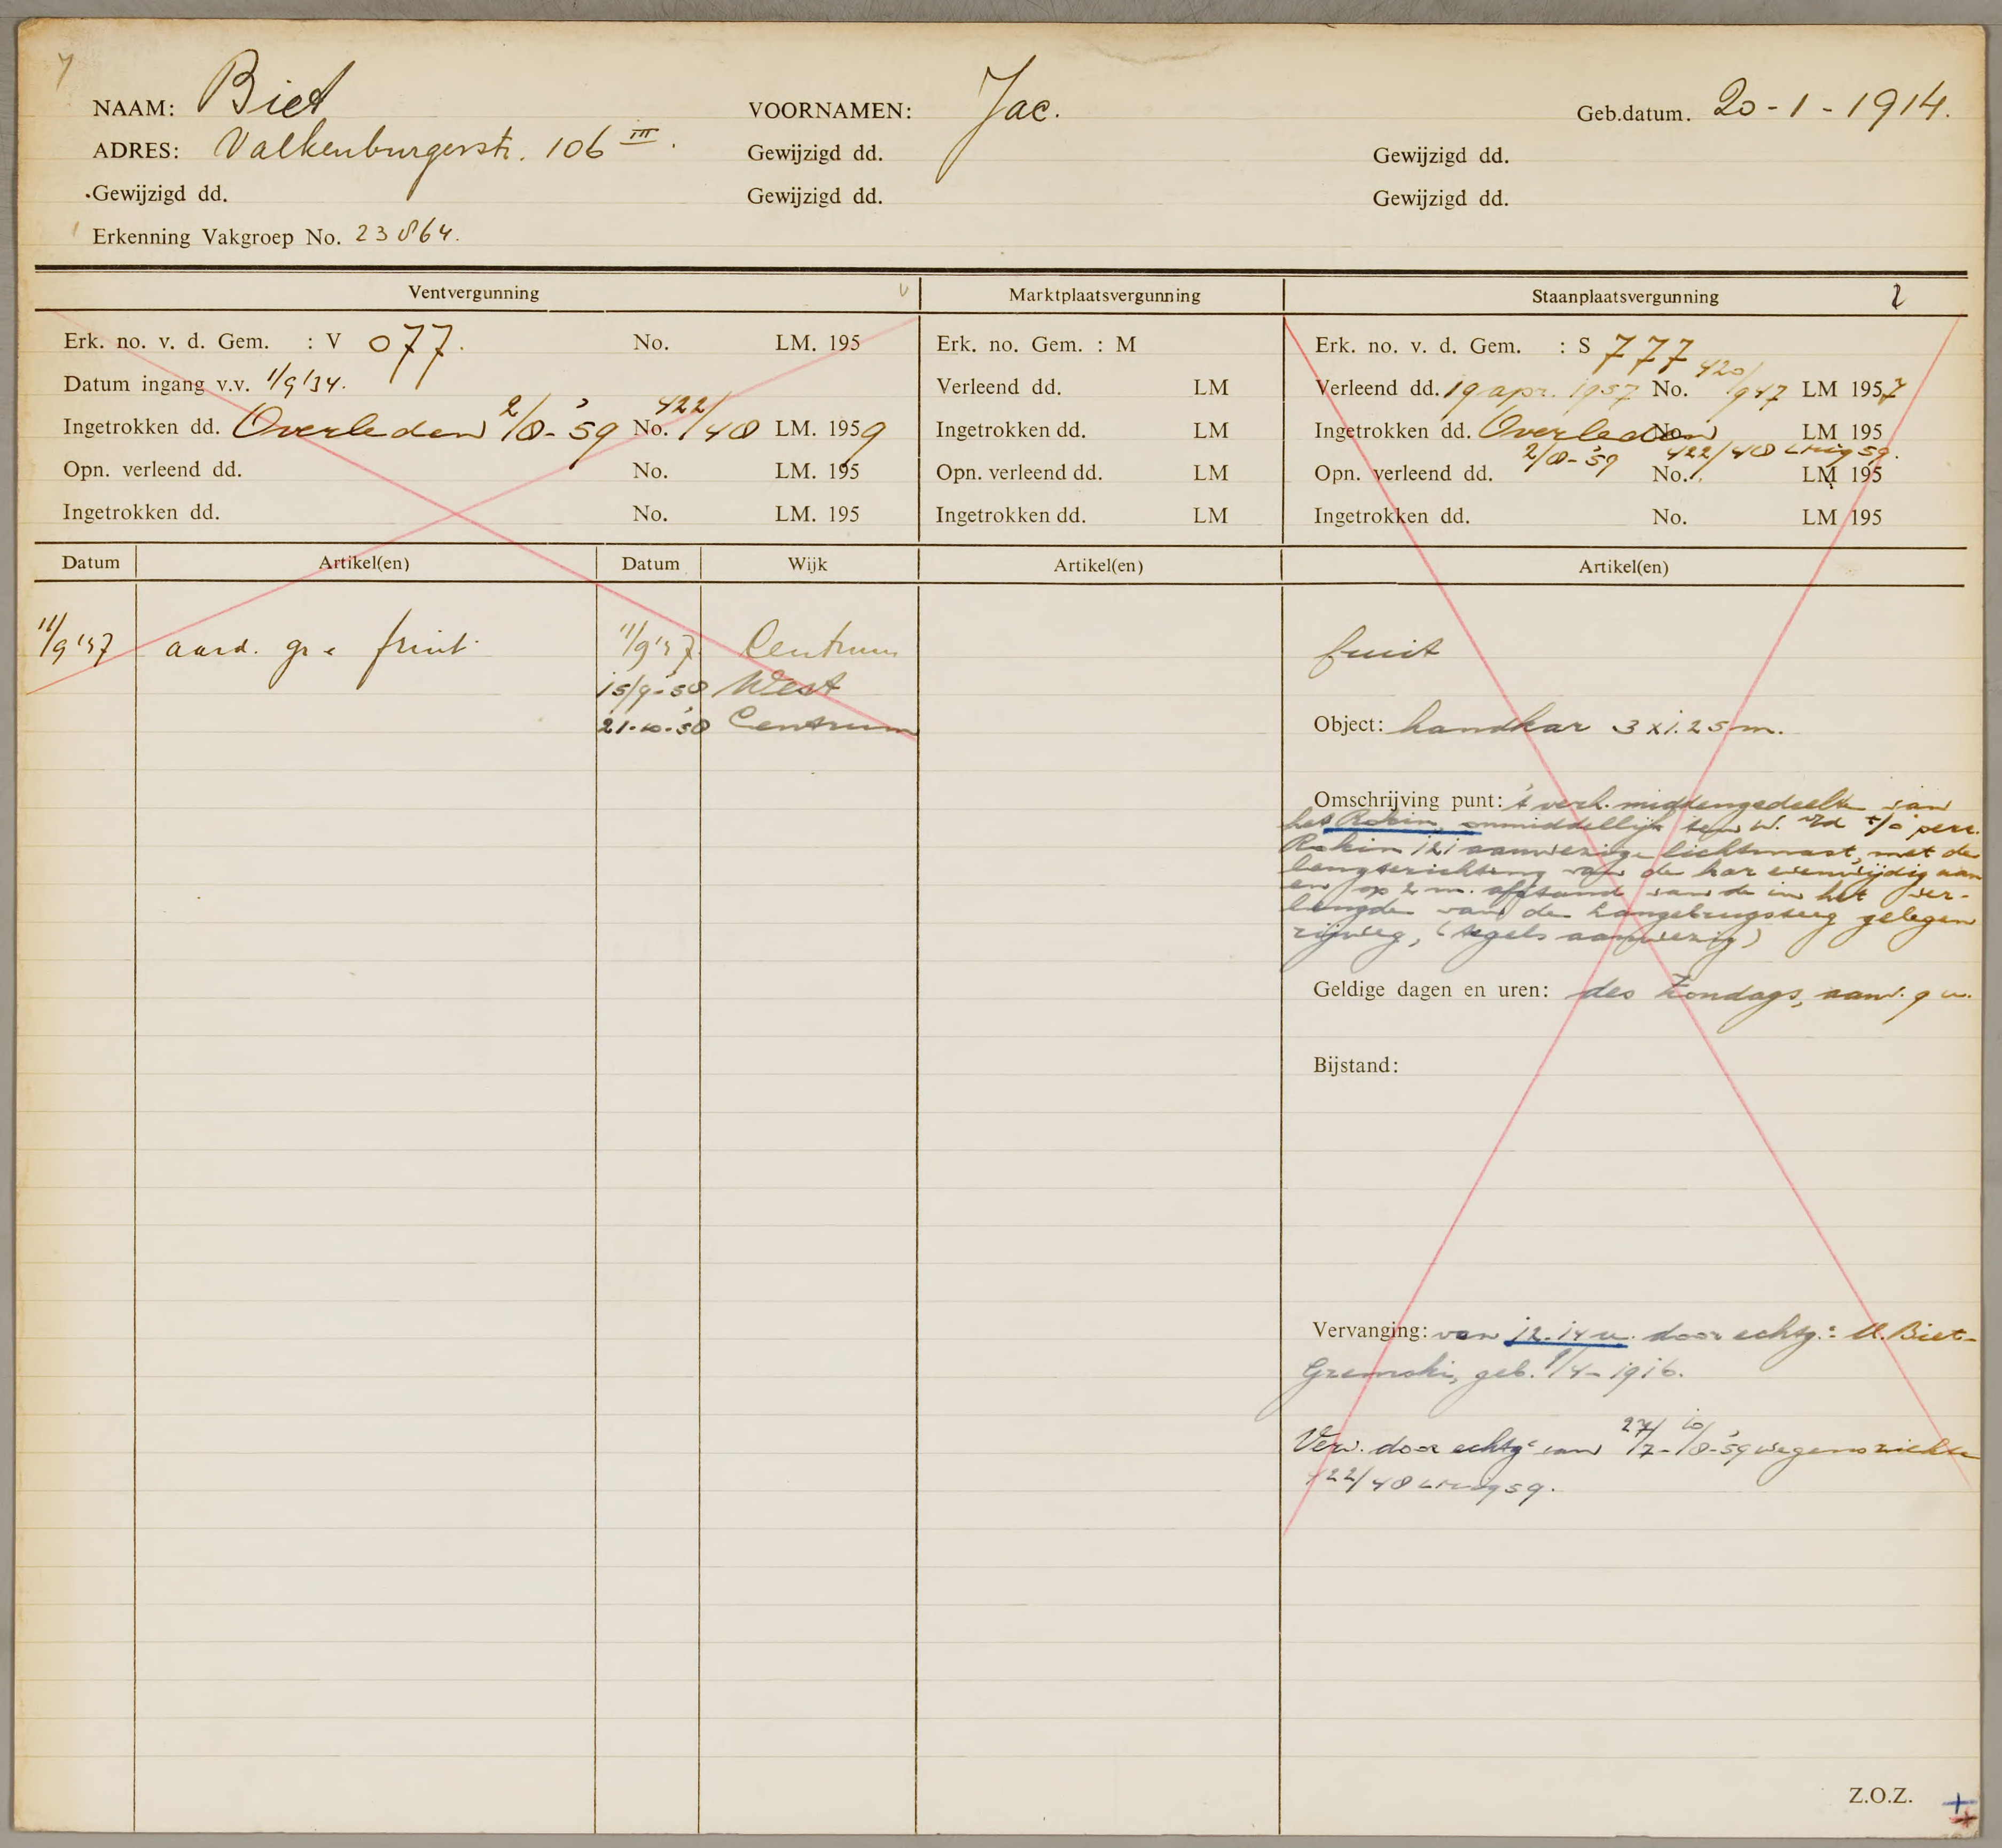 NAAM: Biet VOORNAMEN: Jac. Geb.datum. 20-1-1914.
ADRES: Valkenburgerstr. 106 III. Gewijzigd dd. Gewijzigd dd.
Gewijzigd dd. Gewijzigd dd. Gewijzigd dd.
Erkenning Vakgroep No. 23864.
Ventvergunning Marktplaatsvergunning Staanplaatsvergunning 2
Erk. no. v. d. Gem. : V 077. No. LM. 195 Erk. no. Gem. : M Erk. no. v. d. Gem. : S 777
Datum ingang v.v. 1/9'34. Verleend dd. LM Verleend dd. 19 apr. 1957 No. 420/947 LM 1957
Ingetrokken dd. Overleden 2/8-'59 No. 422/48 LM. 1959 Ingetrokken dd. LM Ingetrokken dd. Overleden No. LM 195
2/8-'59 422/48 LM 1959.
Opn. verleend dd. No. LM. 195 Opn. verleend dd. LM Opn. verleend dd. No. LM 195
Ingetrokken dd. No. LM. 195 Ingetrokken dd. LM Ingetrokken dd. No. LM 195
Datum Artikel(en) Datum Wijk Artikel(en) Artikel(en)
11/9'57 aard. gr. fruit. 11/9'57 Centrum fruit
15/9-'58 West
21-10-'58 Centrum Object: handkar 3 x 1.25 m.
Omschrijving punt: 't verh. middengedeelte van
het Rokin, onmiddellijk ten W. v/d t/o perc.
Rokin 121 aanwezige lichtmast, met de
lengterichting van de kar evenwijdig aan
en op 2 m. afstand van de in het ver-
lengde van de Langebrugsteeg gelegen
rijweg, (tegels aanwezig)
Geldige dagen en uren: des Zondags, aanv. 9 u.
Bijstand:
Vervanging: van 12-14 u. door echtg.e: M. Biet-
Gremski, geb. 1/4-1916.
Verv. door echtg.e van 27/7-10/8-'59 wegens ziekte
422/48 LM 1959.
Z.O.Z.